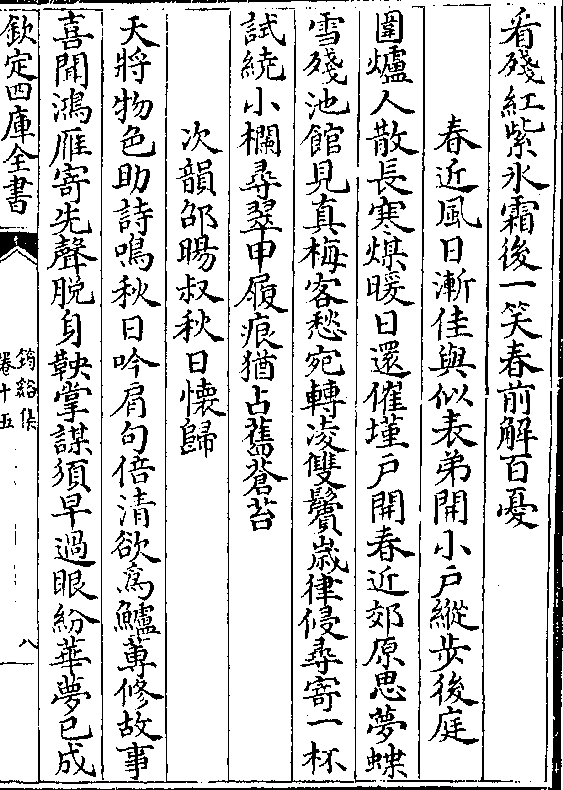 看殘紅紫氷霜後一笑春前解百憂
春近風日漸佳與似表弟開小戶縱步後庭
圍爐人散長寒煤暖日還催墐戶開春近郊原思夢蝶
雪殘池館見真梅客愁宛轉凌雙鬢歳律侵尋寄一杯
試繞小欄尋翠甲履痕猶占舊蒼苔
次韻邵暘叔秋日懷歸
天將物色助詩鳴秋日吟肩句倍清欲為鱸蓴修故事
喜聞鴻雁寄先聲脫身鞅掌謀須早過眼紛華夢已成
欽定四庫全書
筠谿集
卷十五
八